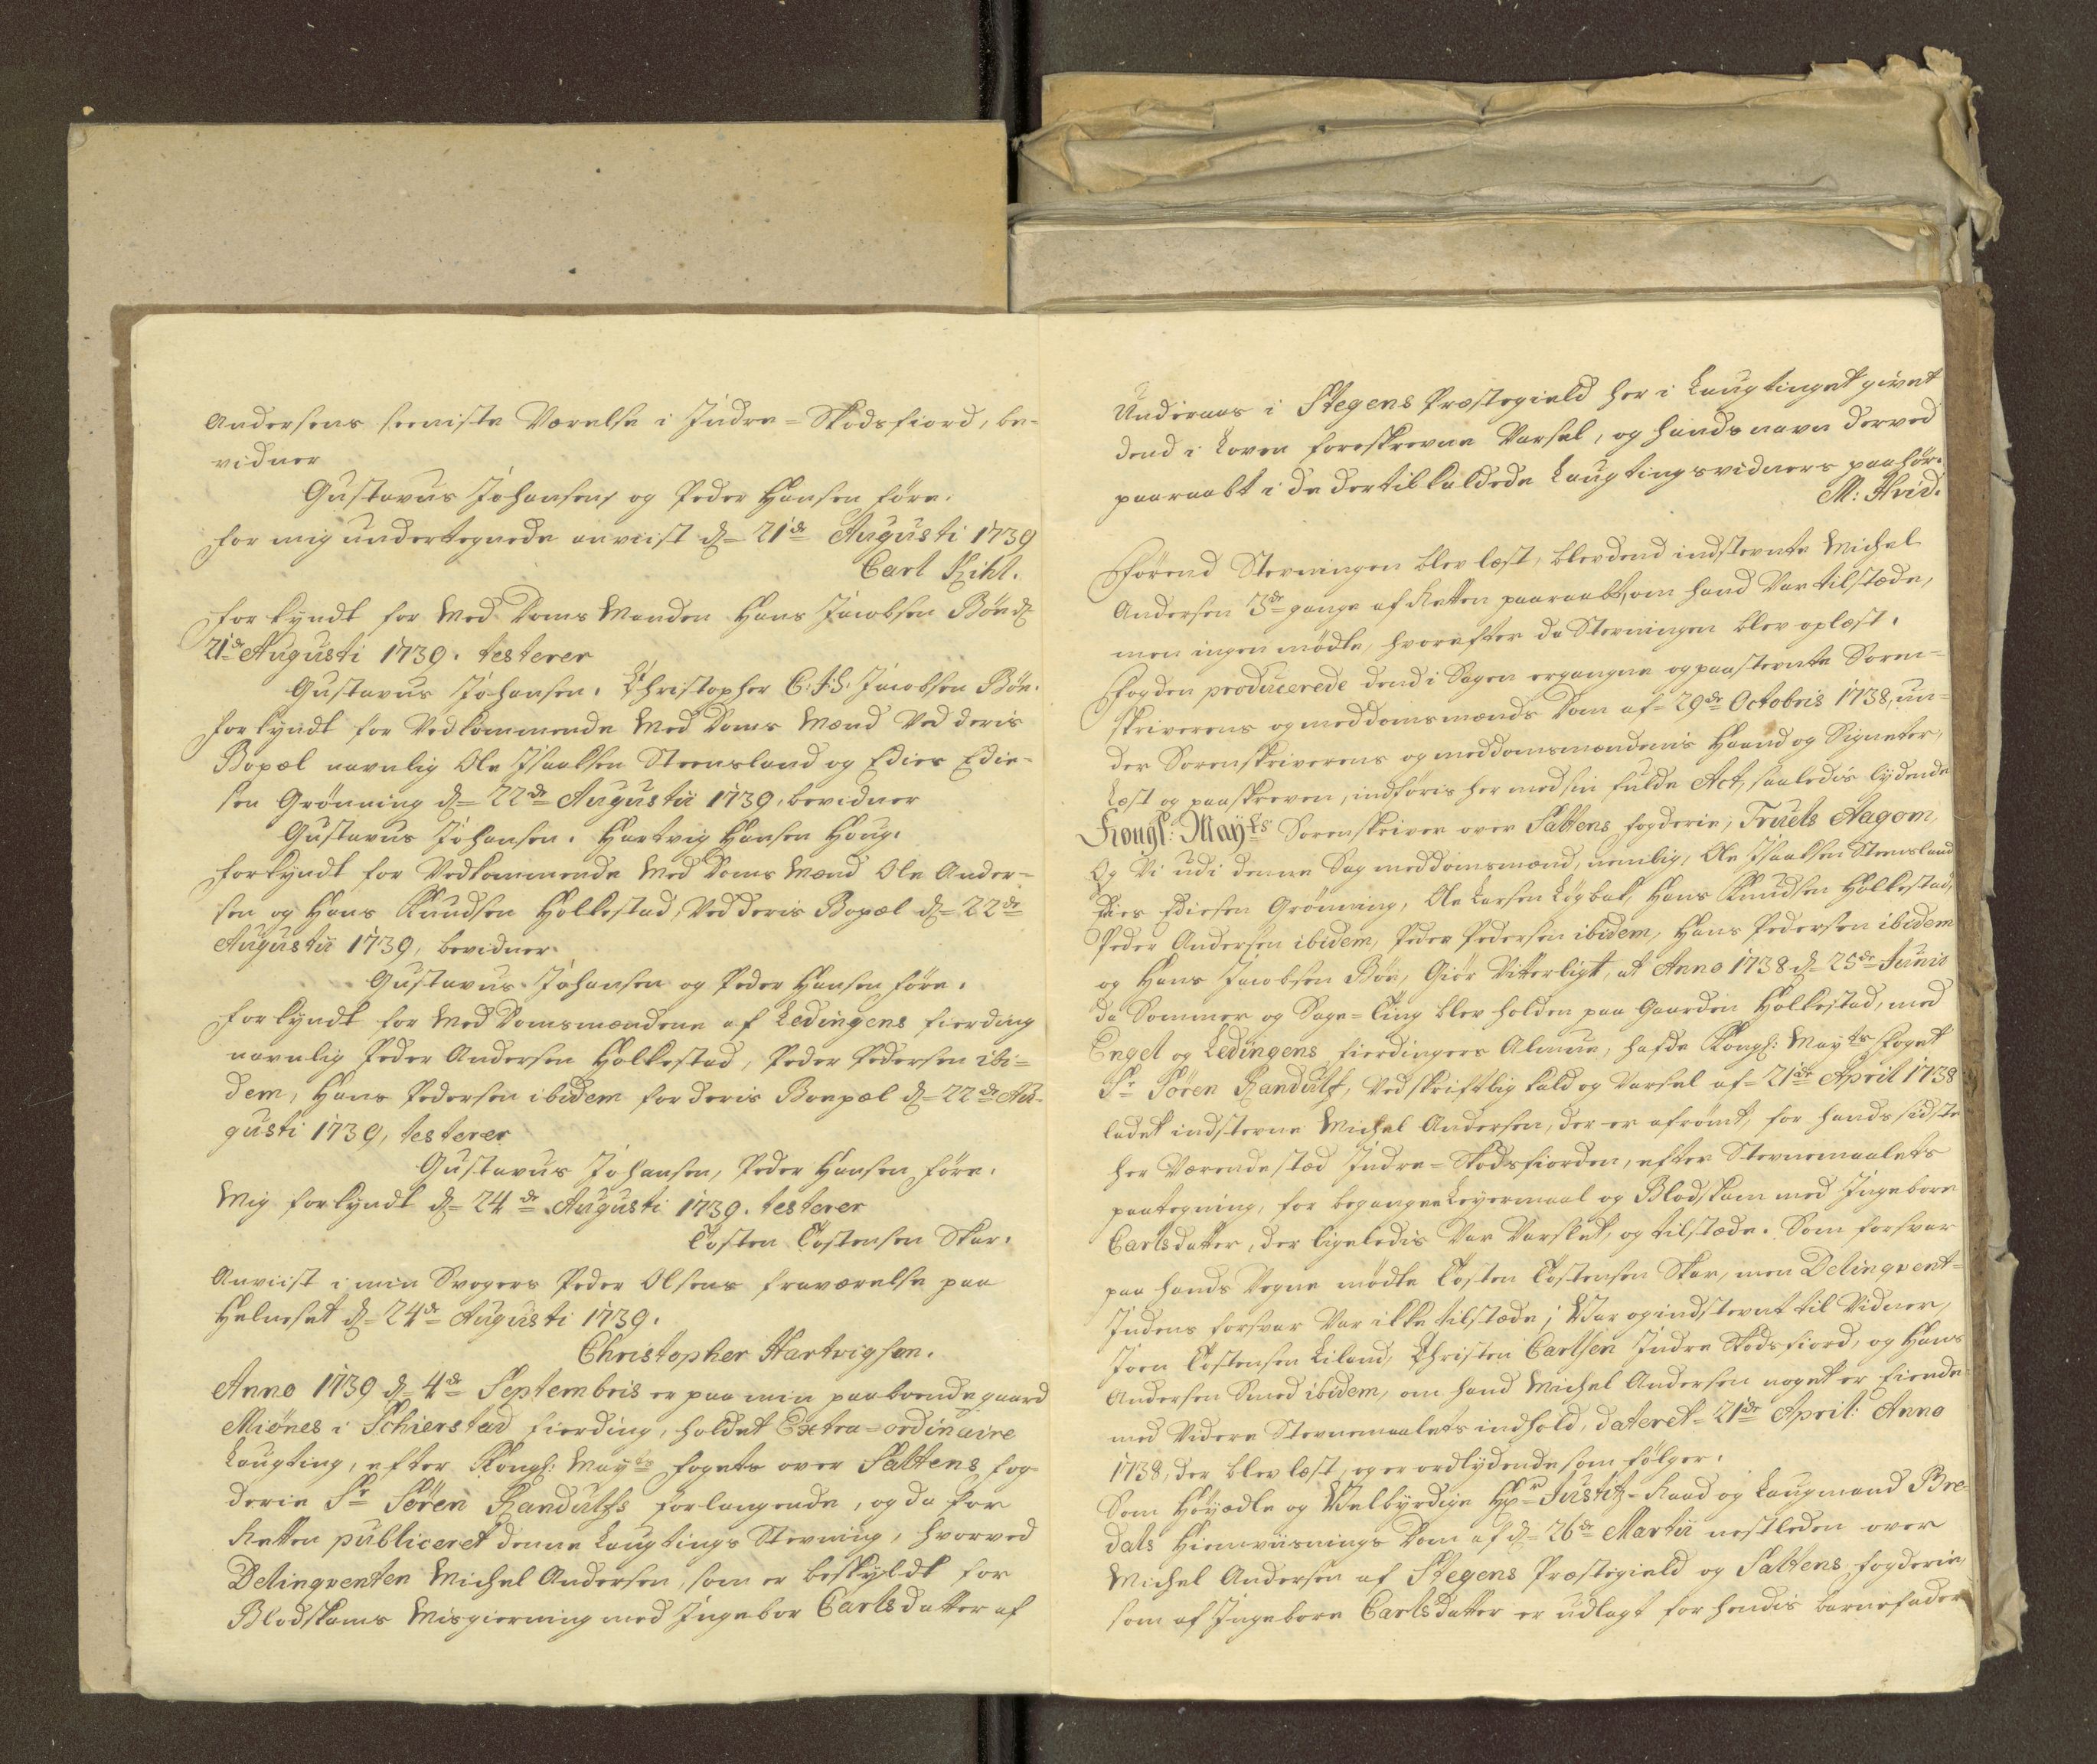 Andersens seeniste Værelse i Indre-Skodsfiord, be-
vidner
Gustavus Johansen, og Peder Hansen Føre.
For mig undertegnede anviist d= 21de Augusti 1739
Carl Kihl.
Forkyndt for Med Doms Manden Hans Jacobsen Bøe d=
21de Augusti 1739. testerer
Gustavus Johansen. Christopher C:F:S: Jacobsen Bøe.
Forkyndt for Vedkommende Med Doms Mænd Ved deris
Bopæl navnlig Ole Isaaksen Steensland og Edies Edie-
sen Grønning d= 22de Augustii 1739, bevidner
Gustavus Johansen. Hartvig Hansen Houg.
Forkyndt for Vedkommende Med Doms Mænd Ole Ander-
sen og Hans Knudsen Holkestad, Ved deris Bopæl d= 22de
Augustii 1739, bevidner.
Gustavus Johansen og Peder Hansen Føre.
Forkyndt for Med Domsmændene af Ledingens fierding
navnlig Peder Andersen Holkestad, Peder Pedersen ibi-
dem, Hans Pedersen ibidem for deris Boepæl d= 22de Au-
gusti 1739, testerer
Gustavus Johansen, Peder Hansen Føre.
Mig forkyndt d= 24de Augusti 1739. testerer
Tosten Tostensen Skar.
Anviist i min Svogers Peder Olsens fraværelse paa
Helneset d= 24de Augusti 1739.
Christopher Hartvigsen.
Anno 1739 d= 4de Septembris er paa min paaboende gaard
Miønes i Schierstad fierding, holdet Extra-ordinaire
Laugting, efter Kongl: Mayts fogets over Saltens fog-
derie Sr Søren Randulfs forlangende, og da for
Retten publiceret denne Laugtings Stevning, hvorved
Delinqventen Michel Andersen, som er beskyldt for
Blodskams Misgierning med Ingebor Carlsdatter af
Underaas i Stegens Præstegield her i Laugtinget givet
dend i Loven foreskrevne Varsel, og hands navn derved
paaraabt i de dertil kaldede Laugtingsvidners paahør.
M: Hvid.
Førend Stevningen blev læst, blev dend indstevnte Michel
Andersen 3de gange af Retten paaraabt, om hand Var tilstæde,
men ingen mødte, hvorefter da Stevningen blev oplæst.
Fogden producerede dend i Sagen ergangne og paastevnte Soren-
skriverens og meddomsmænds Dom af 29de Octobris 1738, un-
der Sorenskriverens og meddomsmændenis Haand og Signeter,
Læst og paaskreven, indføris her med sin fulde Act, saaledis lydende
Kongl: Mayts Sorenskriver over Saltens fogderie, Truels Aagom,
Og Vi udi denne Sag meddomsmænd, nemlig, Ole Isaaksen Steensland
Edies Ediesen Grønning, Ole Larsen Løgbak, Hans Knudsen Holkestad,
Peder Andersen ibidem, Peder Pedersen ibidem, Hans Pedersen ibidem
og Hans Jacobsen Bøe, Giør Vitterligt, at Anno 1738 d= 25de Junio
da Sommer og Sage-Ting blev holden paa Gaarden Holkestad, med
Engel og Ledingens fierdingers Almue, hafde Kongl: Mayts Foget
Sr Søren Randulf, Ved skriftlig kald og Varsel af 21de April 1738
ladet indstevne Michel Andersen, der er afrømt, for hands sidste
her Værende stæd Indre-Skodsfiorden, efter Stevnemaalets
paategning, for begangne Leyermaal og Blodskam med Ingeborre
Carlsdatter, der ligeledis Var Varslet, og tilstæde. Som forsvar
paa hands Vegne mødte Tosten Tostensen Skar, men Delinqvent-
Indens forsvar Var ikke tilstæde; Var og indstevnt til Vidner,
Joen Tostensen Liland, Christen Carlsen Indre Skodsfiord, og Hans
Andersen Smed ibidem, om hand Michel Andersen noget er fiende-
med Videre Stevnemaalets indhold, dateret 21de April: Anno
1738, der blev læst, og er ordlydende som følger.
Som Høyædle og Velbyrdige Hr Justitz-Raad og Laugmand Bre-
dals Hiemviisnings Dom af d= 26de Martii nestleden over
Michel Andersen af Stegens Præstegield og Saltens fogderie,
som af Ingeborre Carlsdatter er udlagt for hendis barnefader